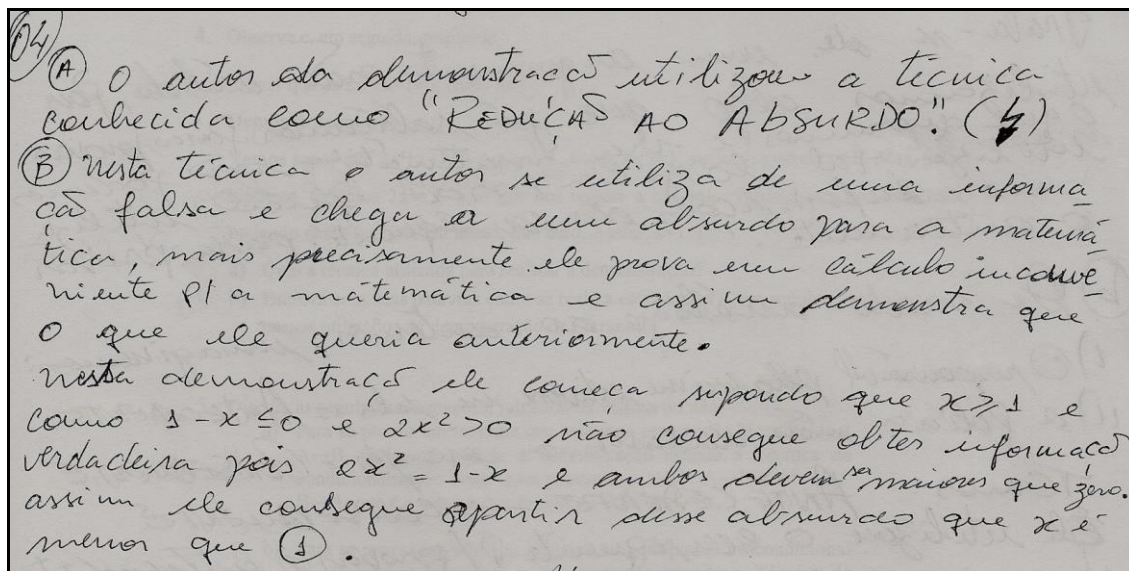 04) (A) O autor da demonstracaõ utilizou a técnica
conhecida como "REDUÇAÕ AO ABSURDO." (↯)
(B) nesta técnica o autor se utiliza de uma informa_
caõ falsa e chega a um absurdo para a matemá_
tica, mais precisamente ele prova um cálculo inconve_
niente p/ a mátemática e assim demonstra que
o que ele queria anteriormente.
nesta demonstraçaõ ele começa supondo que x ⩾ 1 e
como 1 - x ≤ 0 e 2x² > 0 não consegue obter informaçaõ
verdadeira pois 2x² = 1 - x e ambos devem ser maiores que zero.
assim ele consegue apartir desse absurdo que x é
menor que (1).